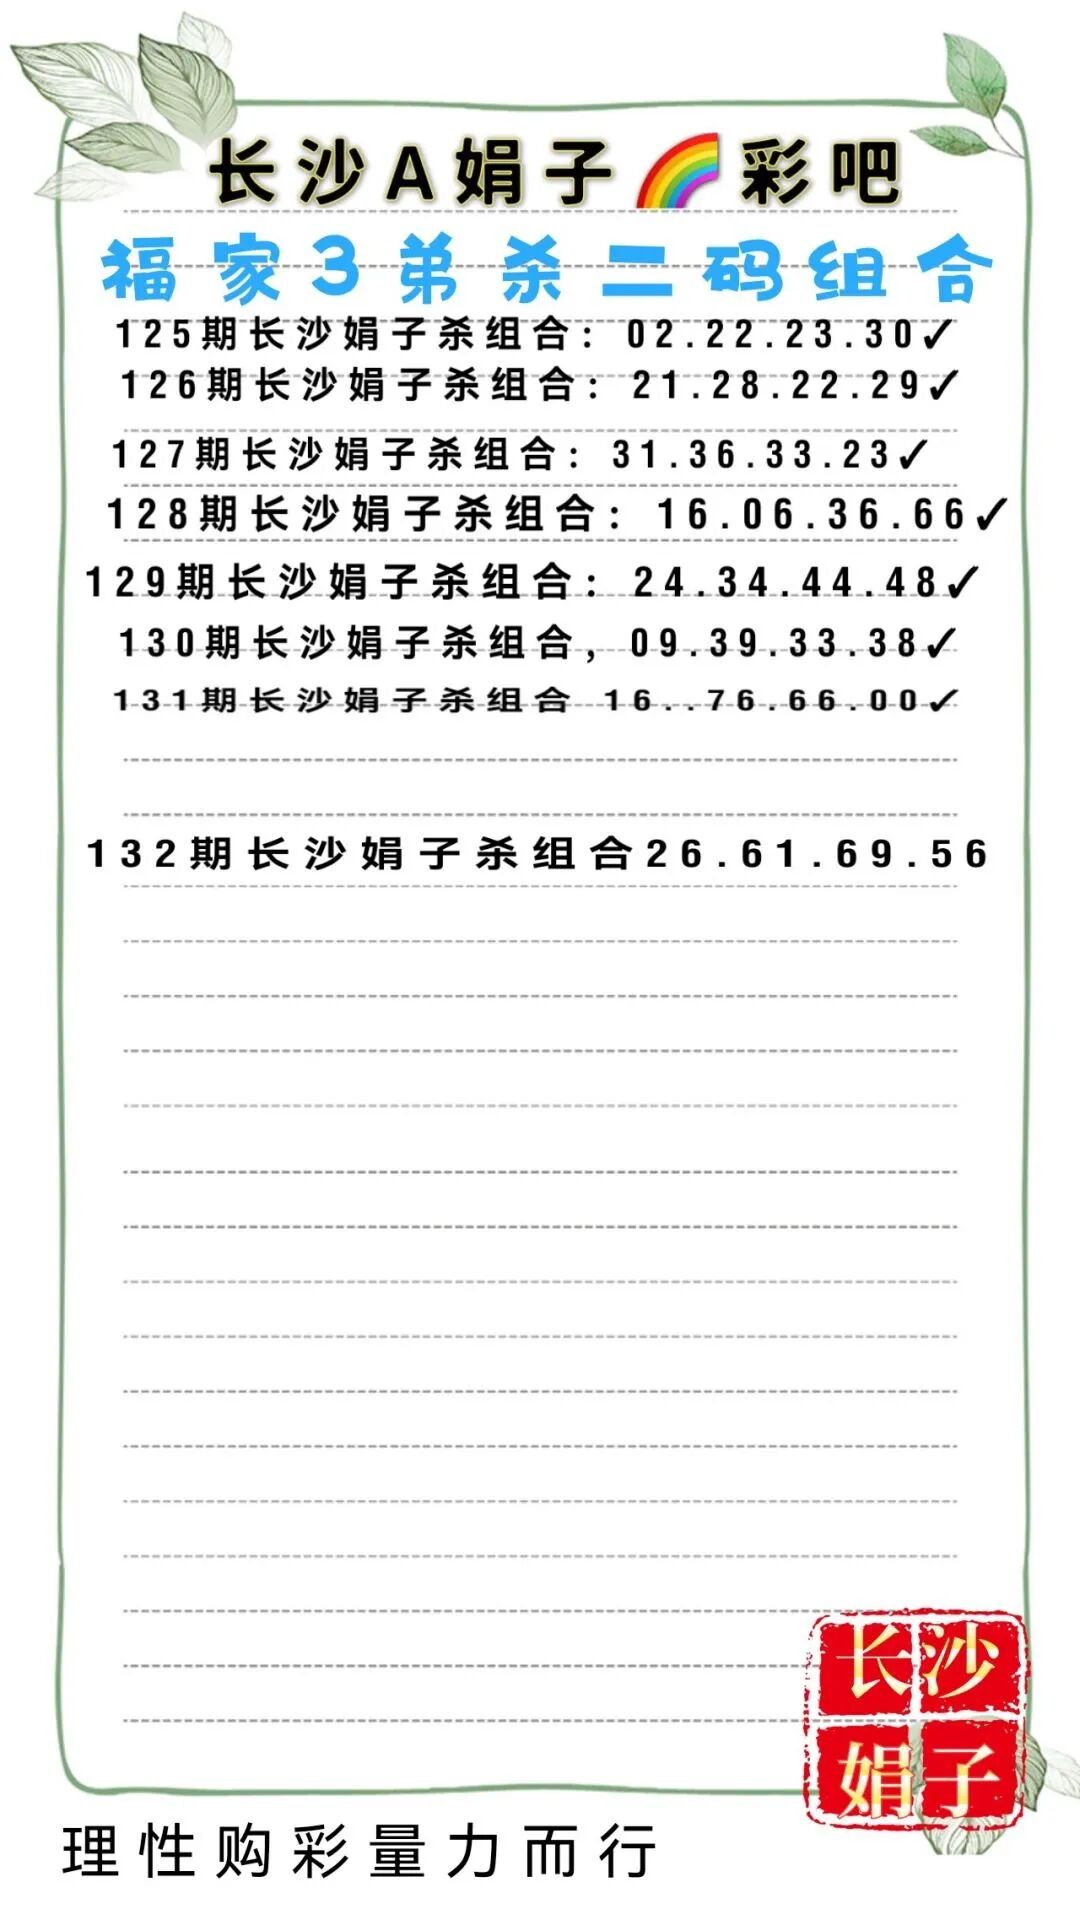 长沙A娟子🌈彩吧
福家3弟杀二码组合
125期长沙娟子杀组合：02.22.23.30✓
126期长沙娟子杀组合：21.28.22.29✓
127期长沙娟子杀组合：31.36.33.23✓
128期长沙娟子杀组合：16.06.36.66✓
129期长沙娟子杀组合：24.34.44.48✓
130期长沙娟子杀组合，09.39.33.38✓
131期长沙娟子杀组合 16..76.66.00✓
132期长沙娟子杀组合26.61.69.56
长沙
娟子
理性购彩量力而行